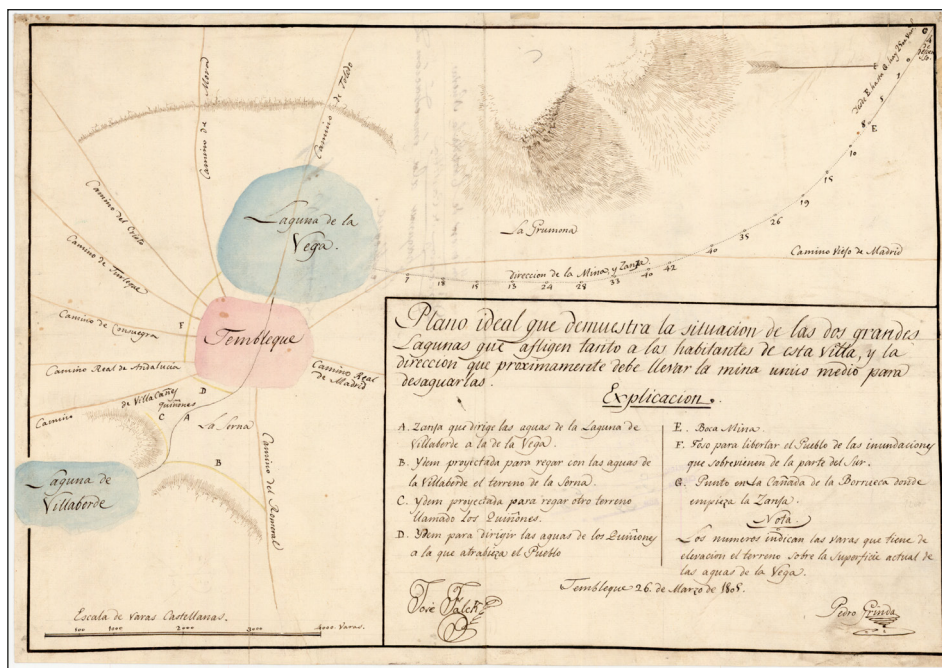 Camino de Mora
Camino de Toledo
Camino del Cristo
Camino de Turleque
Camino de Consuegra
Camino Real de Andalucia
Camino de Villacañas y
quiñones
Laguna de la
Vega.
Tembleque
F
D
C
A
B
La Serna
Camino Real
de Madrid
Camino del Romeral
Laguna de
Villaborde
La Grumona
Desde E. hasta G. hay
G
E
8
10
15
19
26
35
40
42
40
33
28
24
13
15
18
7
Camino Viejo de Madrid
direccion de la Mina, y Zanja
Plano ideal que demuestra la situacion de las dos grandes
Lagunas que afligen tanto a los habitantes de esta Villa, y la
direccion que proximamente debe llevar la mina unico medio para
desaguarlas.
Explicacion.
A. Zanja que dirige las aguas de la Laguna de
Villaborde a la de la Vega.
B. Ydem proyectada para regar con las aguas de
la Villaborde el terreno de la Serna.
C. Ydem proyectada para regar otro terreno
llamado Los Quiñones.
D. Ydem para dirigir las aguas de los Quiñones
a la que atrabieza el Pueblo
E. Boca Mina.
F. Foso para libertar el Pueblo de las inundaciones
que sobrevienen de la parte del Sur.
G. Punto en la Cañada de la Borrueca donde
empieza la Zanja.
Nota
Los numeros indican las varas que tiene de
elevacion el terreno sobre la superficie actual de
las aguas de la Vega.
Tembleque 26. de Marzo de 1805.
José Falch
Pedro Grinda
Escala de Varas Castellanas.
500 1000 2000 3000 4000 Varas.